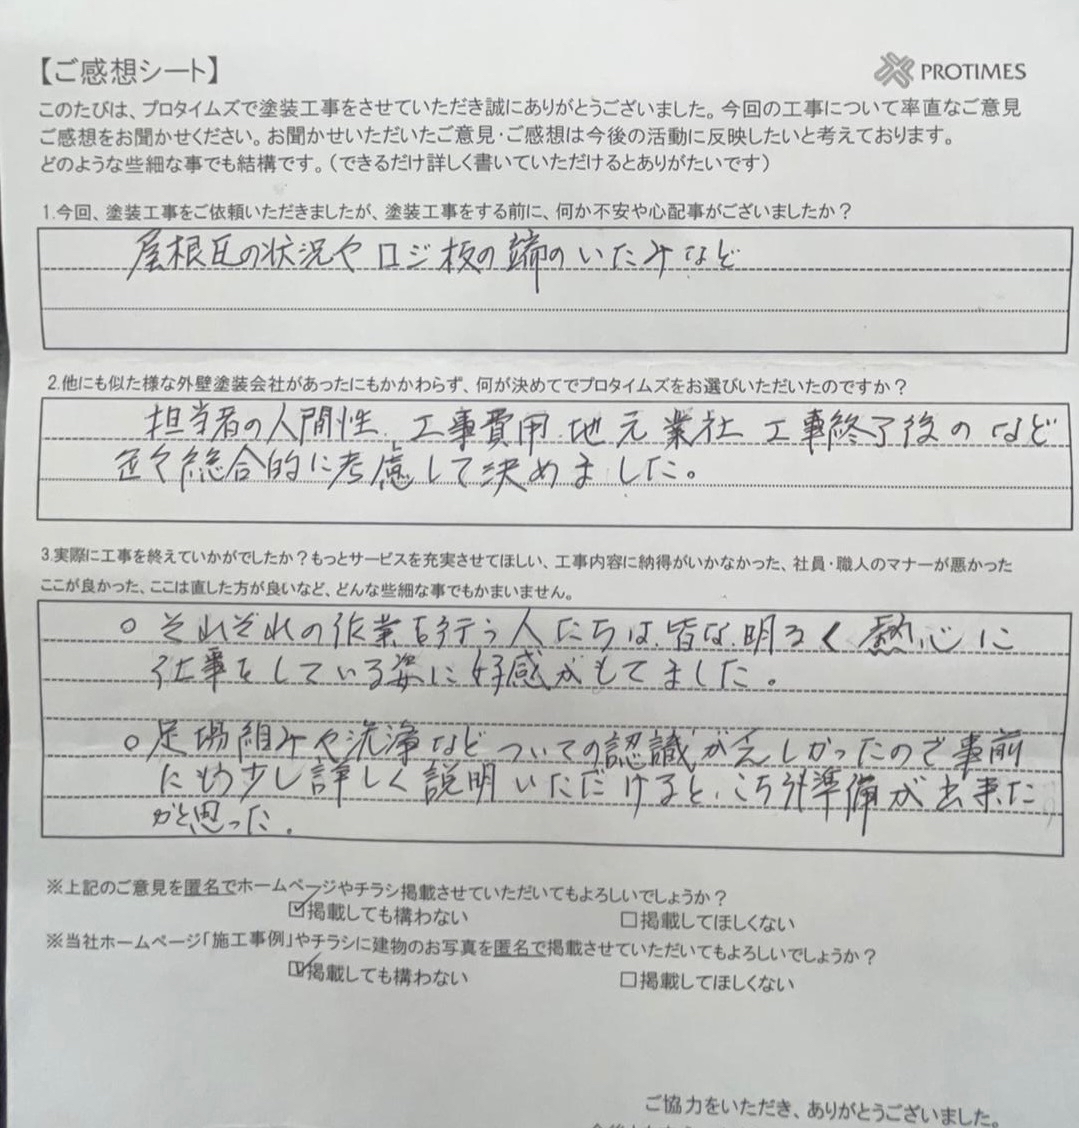 【ご感想シート】
PROTIMES
このたびは、プロタイムズで塗装工事をさせていただき誠にありがとうございました。今回の工事について率直なご意見
ご感想をお聞かせください。お聞かせいただいたご意見・ご感想は今後の活動に反映したいと考えております。
どのような些細な事でも結構です。(できるだけ詳しく書いていただけるとありがたいです)
1.今回、塗装工事をご依頼いただきましたが、塗装工事をする前に、何か不安や心配事がございましたか?
屋根瓦の状況やロジ板の端のいたみなど
2.他にも似た様な外壁塗装会社があったにもかかわらず、何が決めてでプロタイムズをお選びいただいたのですか?
担当者の人間性、工事費用 地元業社 工事終了後の など
総合的に考慮して決めました。
3.実際に工事を終えていかがでしたか?もっとサービスを充実させてほしい、工事内容に納得がいかなかった、社員・職人のマナーが悪かった
ここが良かった、ここは直した方が良いなど、どんな些細な事でもかまいません。
○ それぞれの作業を行う人たちは、皆な、明るく熱心に
仕事をしている姿に好感がもてました。
○ 足場組みや洗浄など ついての認識が乏しかったので事前
にもう少し詳しく説明いただけると、こちらも準備が出来た
かと思った。
※上記のご意見を匿名でホームページやチラシ掲載させていただいてもよろしいでしょうか?
☑掲載しても構わない □掲載してほしくない
※当社ホームページ「施工事例」やチラシに建物のお写真を匿名で掲載させていただいてもよろしいでしょうか?
☑掲載しても構わない □掲載してほしくない
ご協力をいただき、ありがとうございました。